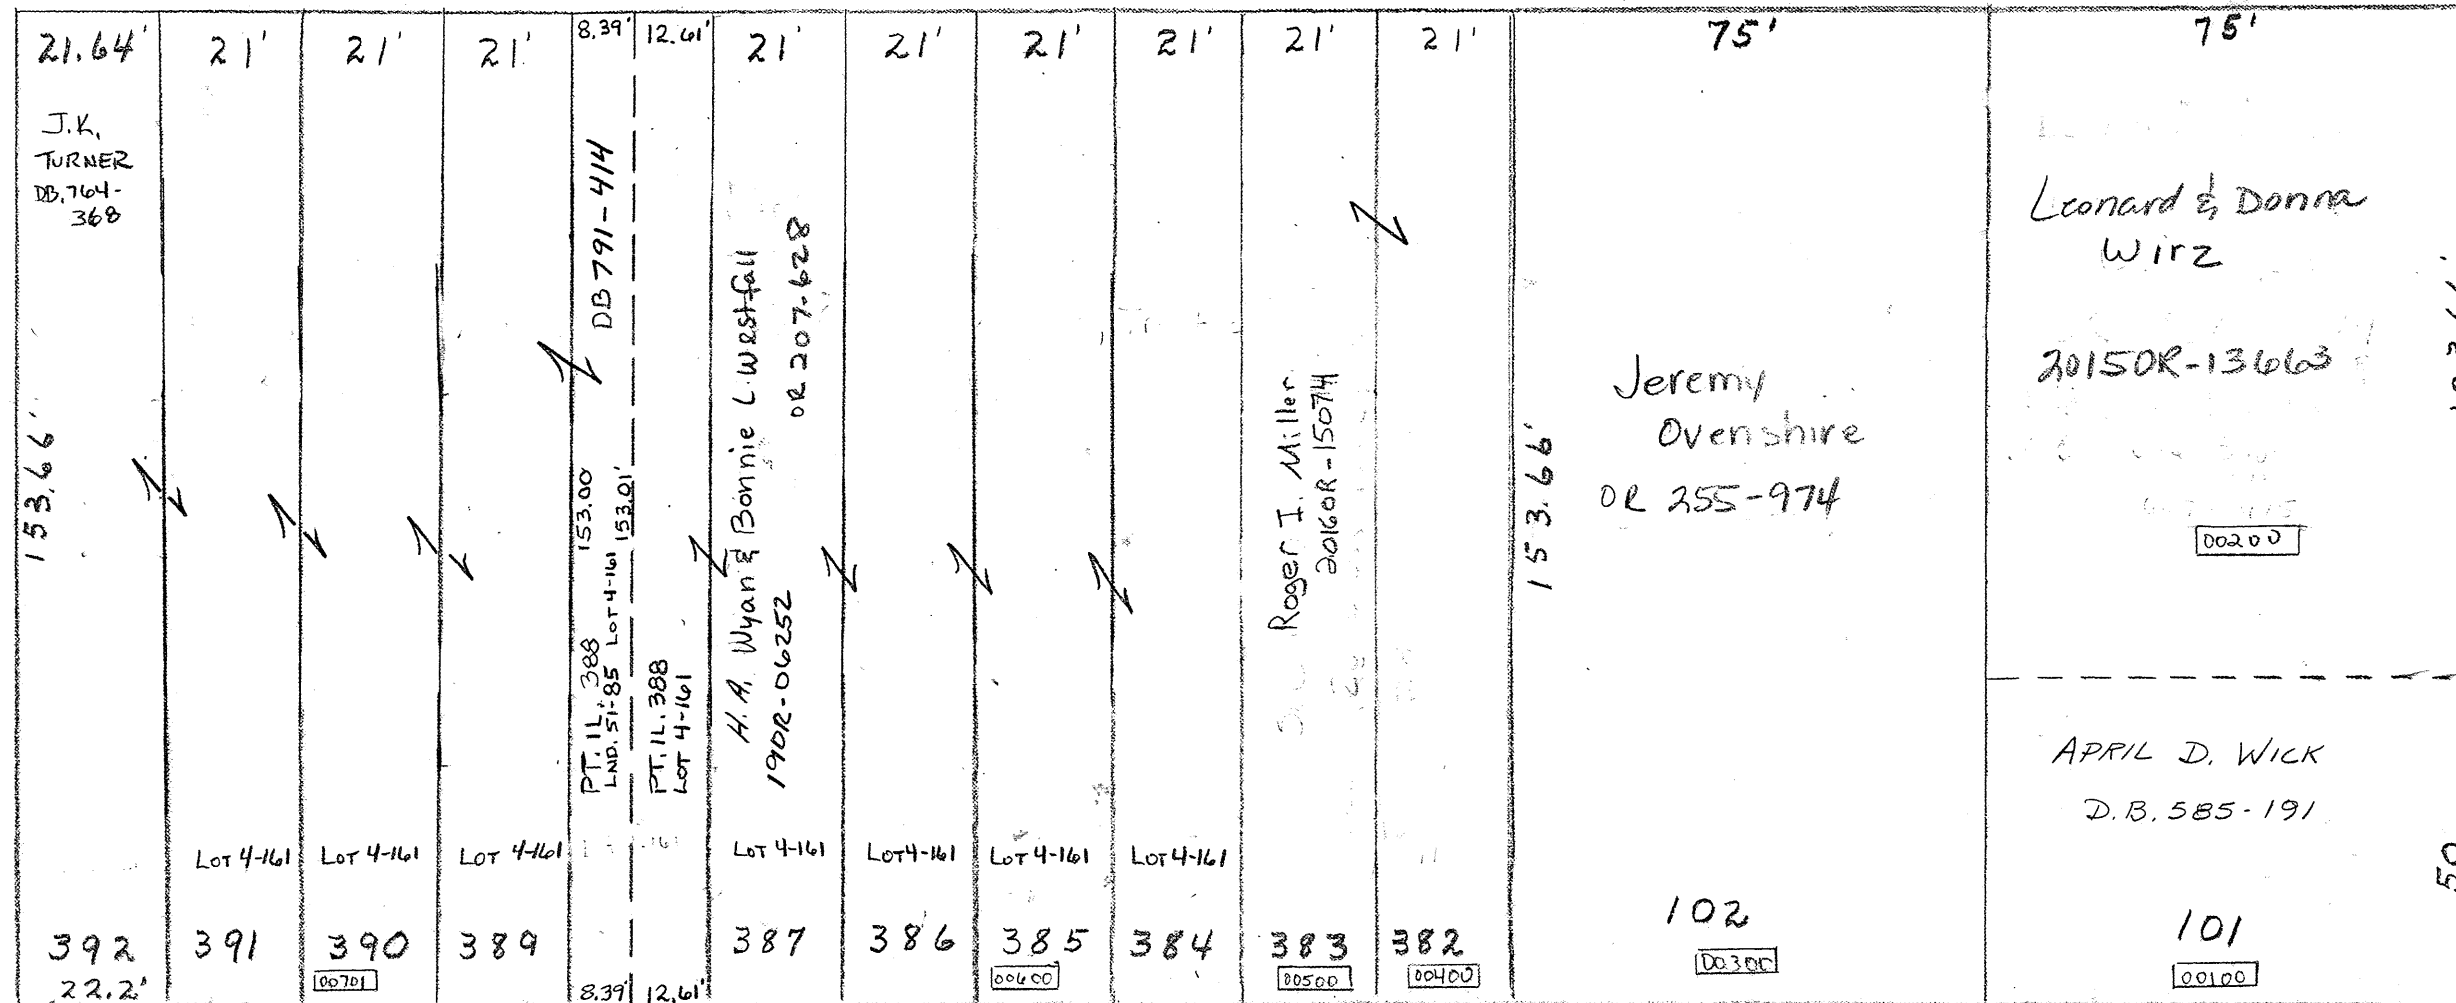 21.64'
21'
21'
21'
8.39'
12.61'
21'
21'
21'
21'
21'
21'
75'
75'
J.K.
TURNER
DB.764-
368
153.66'
DB 791-414
153.00
153.01'
PT. IL. 388
LND. 51-85 LOT 4-161
PT. IL. 388
LOT 4-161
H. A. Wyan & Bonnie L. Westfall
190R-06252
OR 207-628
Roger I. Miller
2016OR-15074
153.66'
Jeremy
Ovenshire
OR 255-974
Leonard & Donna
Wirz
2015OR-13663
00200
APRIL D. WICK
D.B. 585-191
50
LOT 4-161
LOT 4-161
LOT 4-161
LOT 4-161
LOT 4-161
LOT 4-161
LOT 4-161
392
391
390
389
387
386
385
384
383
382
102
101
22.2'
00701
8.39'
12.61'
00600
00500
00400
00300
00100